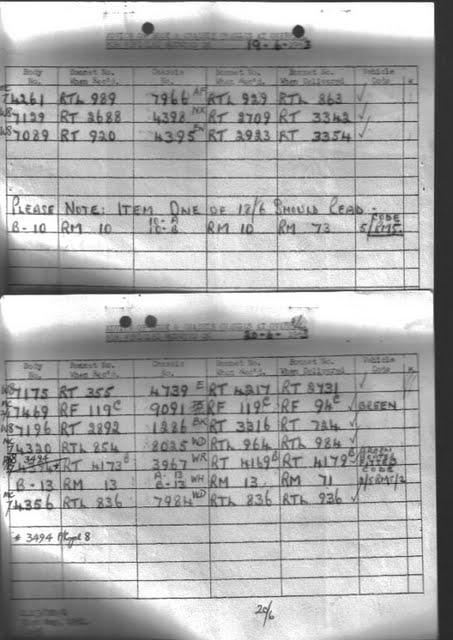 19-6-
Body No. Bonnet No. When Rec'd. Chassis No. Bonnet No. When Rec'd. Bonnet No. When Delivered Vehicle Code
74261 RTL 989 7966 AF RTL 929 RTL 863 ✓
W8 7129 RT 2688 4398 NX RT 2709 RT 3342 ✓
W8 7089 RT 920 4395 EW RT 2923 RT 3354 ✓
PLEASE NOTE: ITEM ONE OF 18/6 SHOULD READ -
B-10 RM 10 10-A 10-B RM 10 RM 73 CODE 5/RM5
20-6-
Body No. Bonnet No. When Rec'd. Chassis Bonnet No. When Rec'd. Bonnet No. When Delivered Vehicle Code
W8 7175 RT 355 4739 E RT 4217 RT 2731 ✓
7469 RF 119 C 9091 RF 119 C RF 94 C ✓ GREEN
W8 7196 RT 2892 1286 BK RT 3316 RT 724 ✓
MC 74320 RTL 854 8025 WD RTL 964 RTL 984 ✓
3494 RT 4173 B 3967 WR RT 4169 B RT 4179 B
B-13 RM 13 A-13 B-13 WH RM 13 RM 71 CODE 2/5RM5/2
MC 74356 RTL 836 7984 WD RTL 836 RTL 936 ✓
# 3494 8
20/6